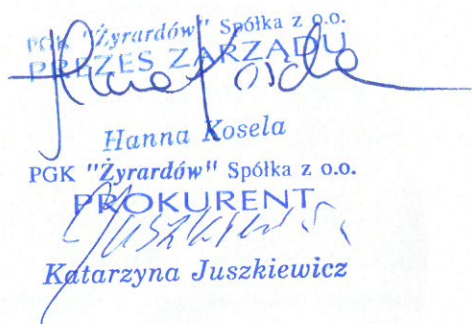 PGK "Żyrardów" Spółka z o.o.
PREZES ZARZĄDU
Hanna Kosela
PGK "Żyrardów" Spółka z o.o.
PROKURENT
Juszkiewicz
Katarzyna Juszkiewicz